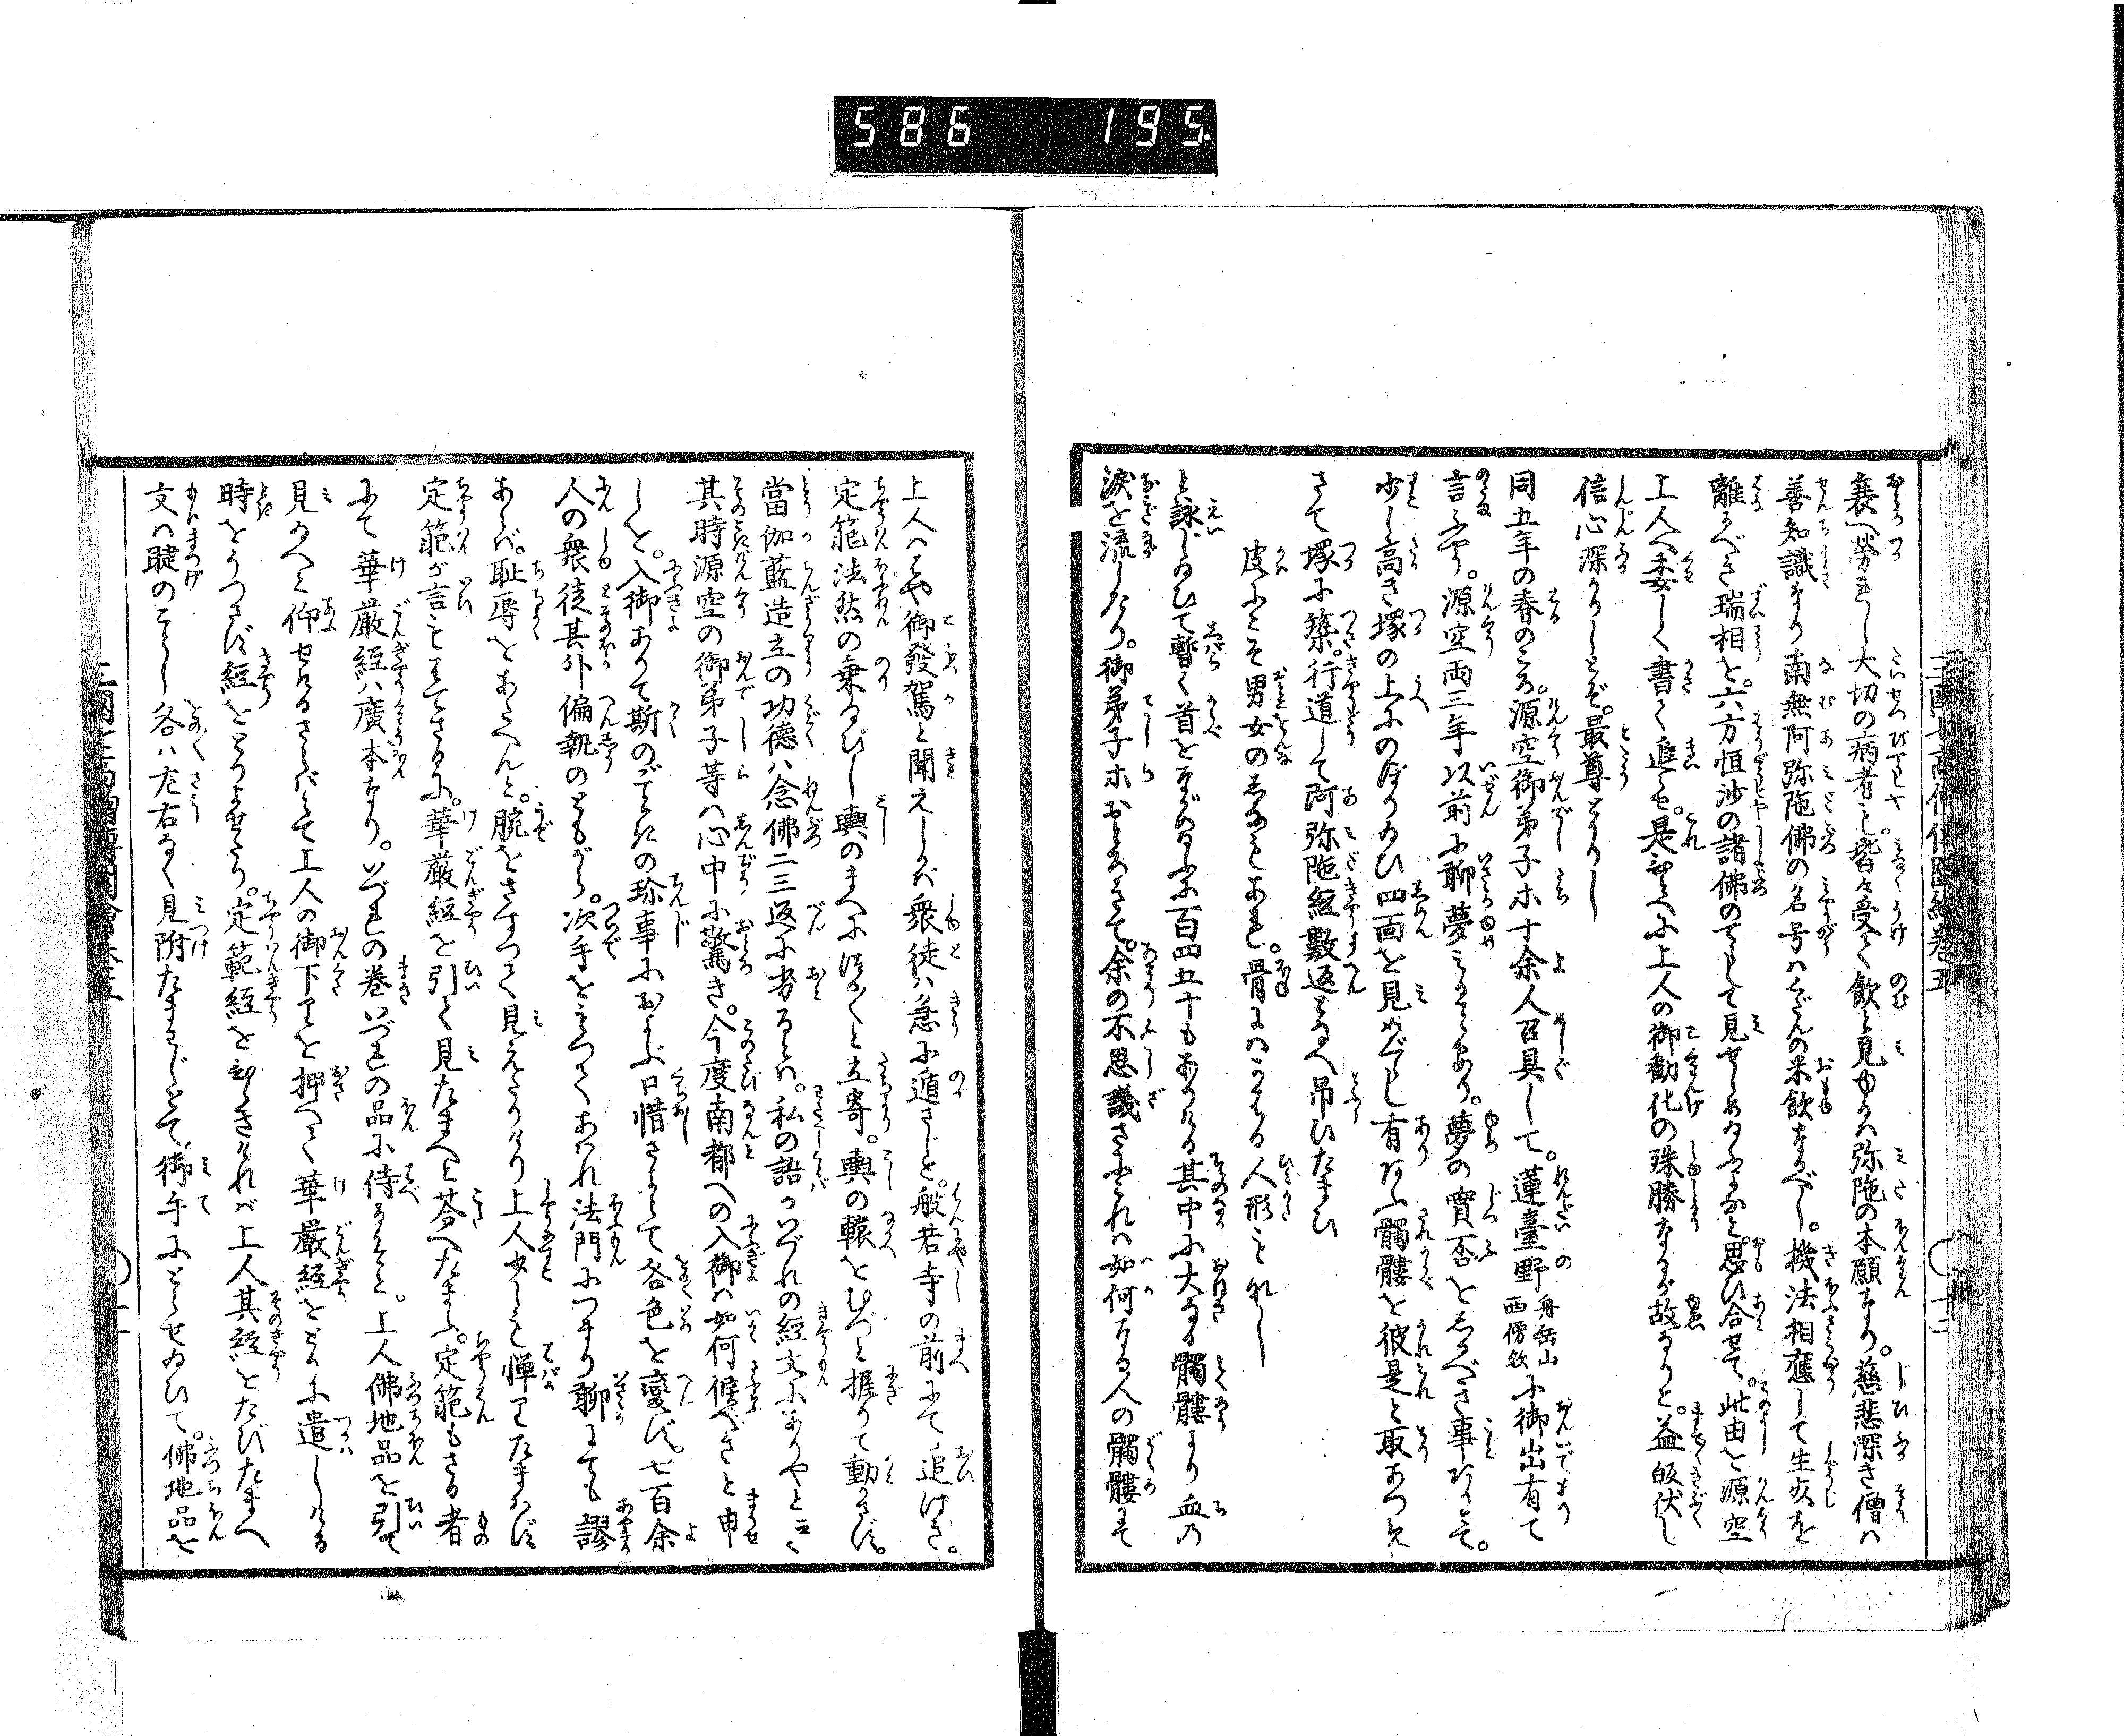 586 195.
衰へ勞れし大切の病者こ。皆々受て飲と見ゆるハ弥陁の本願なり。慈悲深き僧ハ
善知識なり南無阿弥陁佛の名号ハくだんの米飲なるべし。機法相應して生死を
離るべき瑞相を。六方恒沙の諸佛のてして見せしめ給ふかと思ひ合せて。此由を源空
上人へ委しく書て進らせ。是ひとへに上人の御勸化の殊勝なるが故なりと。益皈伏し
信心深かりしとぞ。最尊とかりし
同五年の春のころ。源空御弟子ホ十余人召具して。蓮臺野舟岳山西傍欤に御出有て
言ふやう。源空両三年以前に聊夢みることあり。夢の實否をしるべき事ありとて。
少し高き塚の上にのぼり給ひ四面を見めぐらし有あふ髑髏を彼是と取あつめ
さて塚に築。行道して阿弥陁經數返となへ吊ひたまひ
皮にこそ男女のしなもあれ。骨にハかはる人形もなし
と詠じ給ひて暫く首をながめるに百四五十もありける其中に大なる髑髏より血の
涙を流したり。御弟子ホおどろきて。余の不思議さにこれハ如何なる人の髑髏にて
上人ハはや御發駕と聞えしかバ衆徒ハ急に遁さじと。般若寺の前にて追付き。
定範法然の乗給ひし輿のまへにつか〱と立寄。輿の轅をむづと握りて動かさず。
當伽藍造立の功徳ハ念佛二三返に劣るとハ。私の語かいづれの經文にありやと云〱
其時源空の御弟子等ハ心中に驚き。今度南都への入御ハ如何候べきと申
しを。入御ありて斯のごときの珍事におよぶ口惜さよとて各色を變ず。七百余
人の衆徒其外偏執のともがら。次手をもつてあはれ法門につまり聊にても謬
あらバ。耻辱をあたへんと。腕をさすつて見えたりけり上人少しも憚りたまはず
定範が言をきてさるに。華厳經を引て見たまへと荅へたまふ。定範もさる者
にて華厳經ハ廣本なり。いづれの巻いづれの品に侍るぞと。上人佛地品を引て
見給へと仰せけるさらバとて上人の御下りを押へて華厳經をとりに遣しける
時をうつさず經をとりよせたり。定範經をひらきけれバ上人其經をたびたまへ
文ハ睫のごとし各ハ左右なく見附たまはじとて。御手にとらせ給ひて。佛地品を